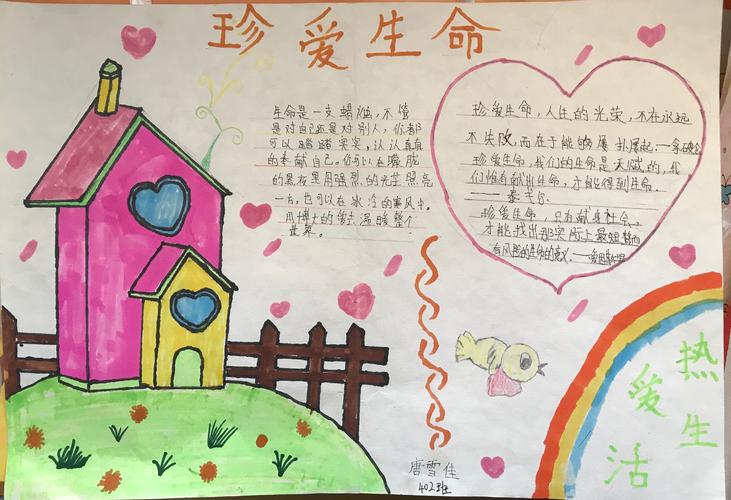 珍爱生命
生命是一支蜡烛，不管
是对自己还是对别人，你都
可以踏踏实实，认认真真
的奉献自己。你可以在朦胧
的黑夜里用强烈的光芒照亮
一方，也可以在冰冷的寒风中，
用博大的爱去温暖整个
世界。
珍爱生命，人生的光荣，不在永远
不失败，而在于能够屡扑屡起。——拿破仑
珍爱生命，我们的生命是天赋的，我
们惟有献出生命，才能得到生命。
泰戈尔
珍爱生命，只有献身社会，
才能找出那实际上最短暂而
有风险的生命的意义。——爱因斯坦
热
爱
生
活
唐雪佳
402班